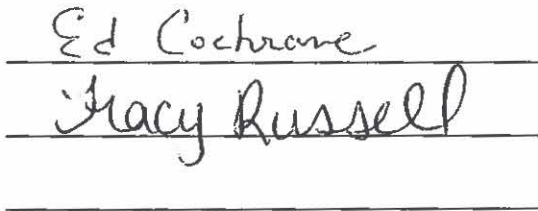 Ed Cochrane
Tracy Russell